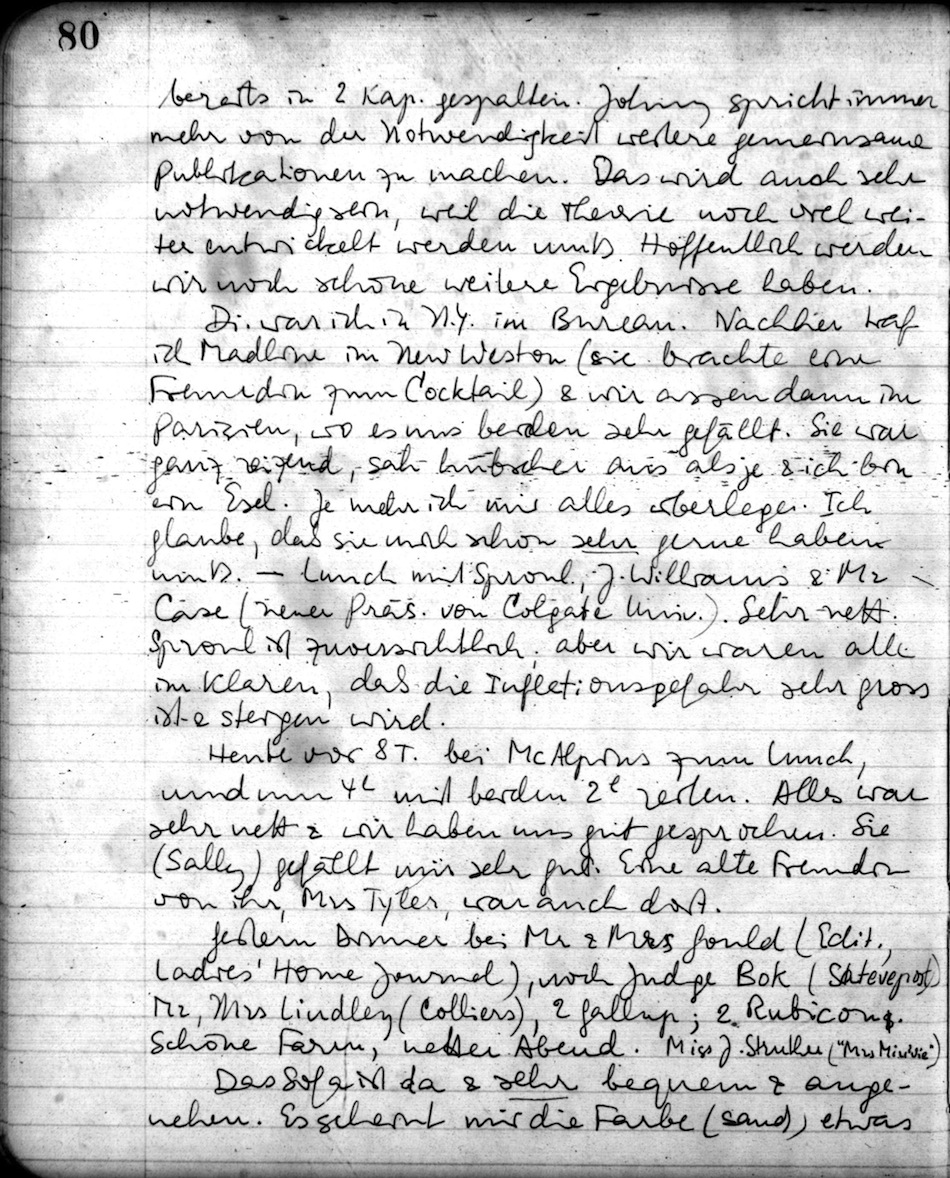 80
bereits in 2 Kap. gespalten. Johnny spricht immer
mehr von der Notwendigkeit weitere gemeinsame
Publikationen zu machen. Das wird auch sehr
notwendig sein, weil die Theorie noch viel wei-
ter entwickelt werden muß. Hoffentlich werden
wir noch schöne weitere Ergebnisse haben.
Di. war ich in N.Y. im Bureau. Nachher traf
ich Madlone im New Weston (sie brachte eine
Freundin zum Cocktail) & wir assen dann im
Parisien, wo es uns beiden sehr gefällt. Sie war
ganz reizend, sah hübscher aus als je & ich bin
ein Esel. Je mehr ich mir alles überlege. Ich
glaube, daß sie mich schon sehr gerne haben
muß. — Lunch mit Sproul, J. Williams & Mr
Case (neuer Präs. von Colgate Univ.). Sehr nett.
Sproul ist zuversichtlich, aber wir waren alle
im Klaren, daß die Inflationsgefahr sehr gross
ist & steigen wird.
Heute vor 8 T. bei McAlpins zum Lunch,
und um 4 mit beiden 2 reiten. Alles war
sehr nett & wir haben uns gut gesprochen. Sie
(Sally) gefällt mir sehr gut. Eine alte Freundin
von ihr, Mrs Tyler, war auch dort.
Gestern Dinner bei Mr & Mrs Gould (Edit.,
Ladies' Home Journal), noch Judge Bok (Satevepost)
Mr, Mrs Lindley (Colliers), 2 Gallup; 2 Rubicon.
Schöne Farm, netter Abend. Miss J. Struther ("Mrs Miniver")
Das Sofa ist da & sehr bequem & ange-
nehm. Es scheint mir die Farbe (sand) etwas